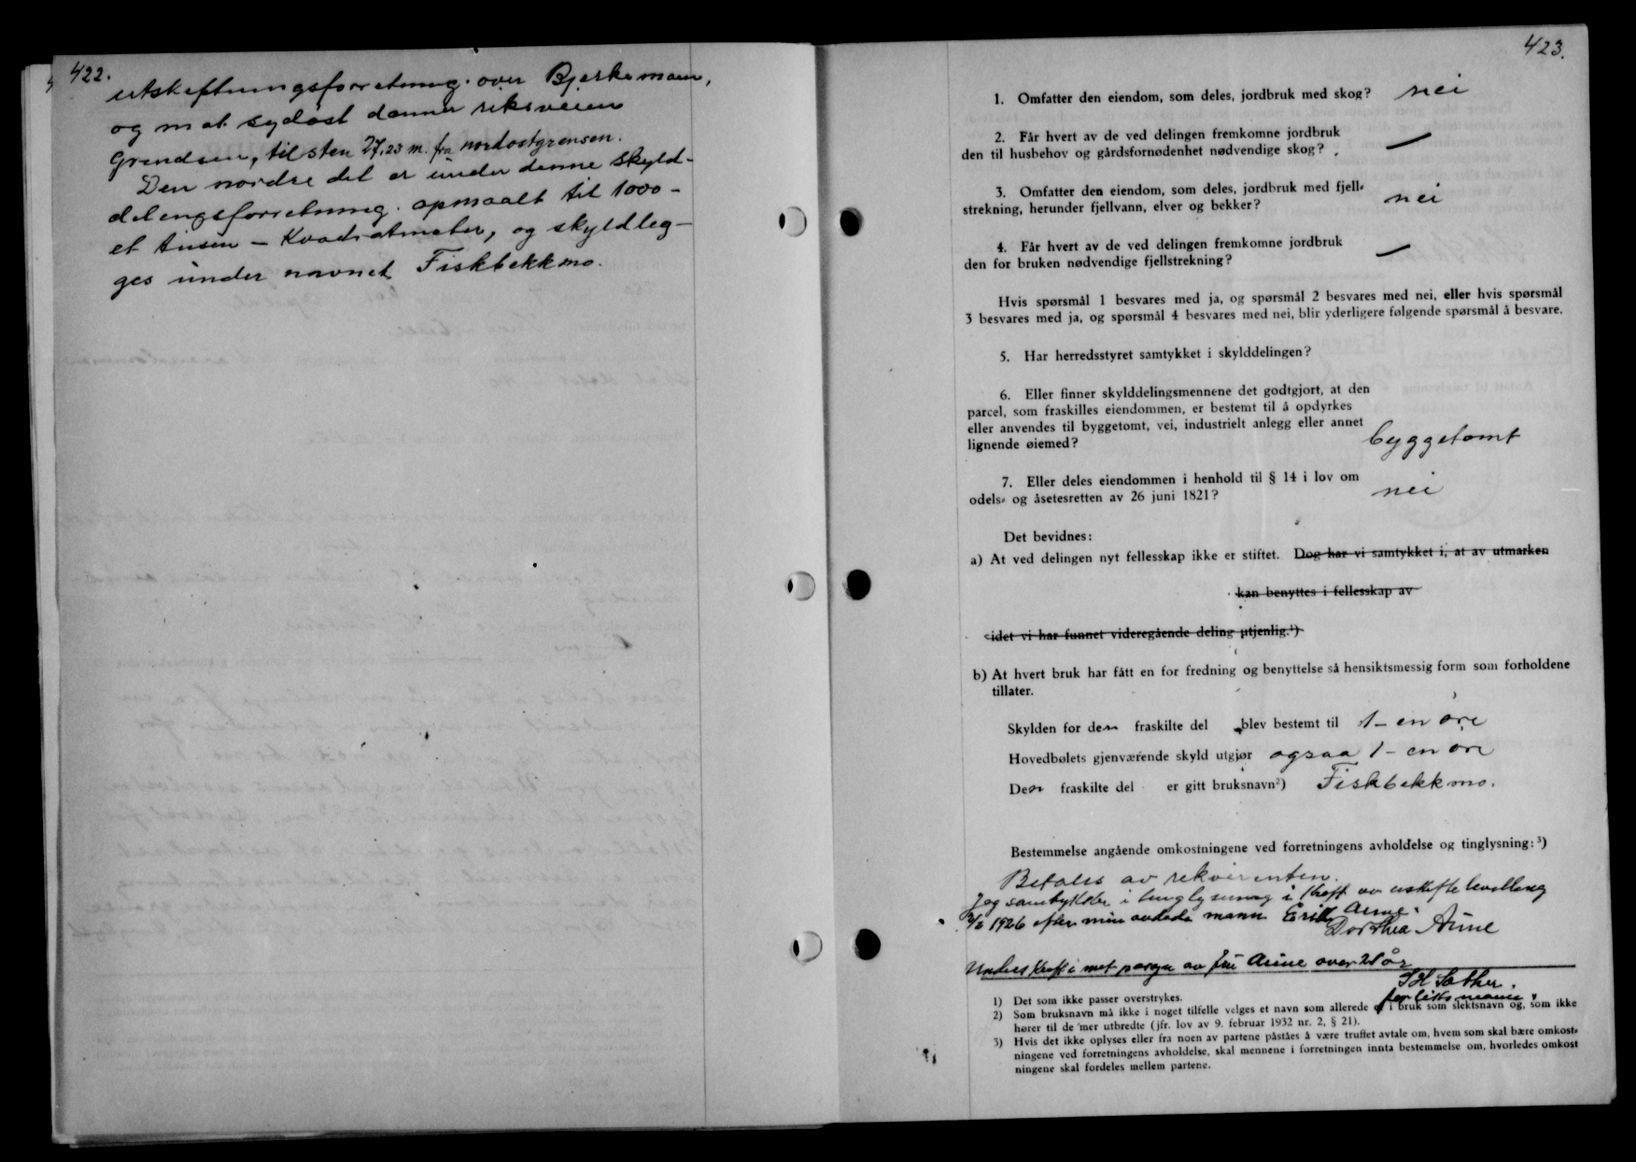 422.
utskeftningsforretning. over Bjerkemoen,
og mot sydøst danner riksveien
Grendsen, til sten 27,23 m. fra nordostgrensen.
Den nordre del er under denne skyld-
delingsforretning. opmaalt til 1000 -
et tusen - Kvadratmeter, og skyldleg-
ges under navnet Fiskbekkmo.
423.
1. Omfatter den eiendom, som deles, jordbruk med skog? nei
2. Får hvert av de ved delingen fremkomne jordbruk
den til husbehov og gårdsfornødenhet nødvendige skog? —
3. Omfatter den eiendom, som deles, jordbruk med fjell-
strekning, herunder fjellvann, elver og bekker? nei
4. Får hvert av de ved delingen fremkomne jordbruk
den for bruken nødvendige fjellstrekning? —
Hvis spørsmål 1 besvares med ja, og spørsmål 2 besvares med nei, eller hvis spørsmål
3 besvares med ja, og spørsmål 4 besvares med nei, blir yderligere følgende spørsmål å besvare.
5. Har herredsstyret samtykket i skylddelingen?
6. Eller finner skylddelingsmennene det godtgjort, at den
parcel, som fraskilles eiendommen, er bestemt til å opdyrkes
eller anvendes til byggetomt, vei, industrielt anlegg eller annet
lignende øiemed? byggetomt
7. Eller deles eiendommen i henhold til § 14 i lov om
odels- og åsetesretten av 26 juni 1821? nei
Det bevidnes:
a) At ved delingen nyt fellesskap ikke er stiftet. Dog har vi samtykket i, at av utmarken
kan benyttes i fellesskap av
idet vi har funnet videregående deling utjenlig.¹)
b) At hvert bruk har fått en for fredning og benyttelse så hensiktsmessig form som forholdene
tillater.
Skylden for den fraskilte del blev bestemt til 1 - en øre
Hovedbølets gjenværende skyld utgjør ogsaa 1 - en øre
Den fraskilte del er gitt bruksnavn²) Fiskbekkmo.
Bestemmelse angående omkostningene ved forretningens avholdelse og tinglysning:³)
Betales av rekvirenten.
Jeg samtykker i tinglysning i kraft av uskiftebevilling
2/2 1926 efter min avdøde mann Erik Aune.
Dorthea Aune
Underskreft i mot pasya av fru Aune over 21 år
Sæther.
1) Det som ikke passer overstrykes.
2) Som bruksnavn må ikke i noget tilfelle velges et navn som allerede er i bruk som slektsnavn og, som ikke
hører til de mer utbredte (jfr. lov av 9. februar 1932 nr. 2, § 21).
3) Hvis det ikke oplyses eller fra noen av partene påståes å være truffet avtale om, hvem som skal bære omkost-
ningene ved forretningens avholdelse, skal mennene i forretningen innta bestemmelse om, hvorledes omkost
ningene skal fordeles mellem partene.